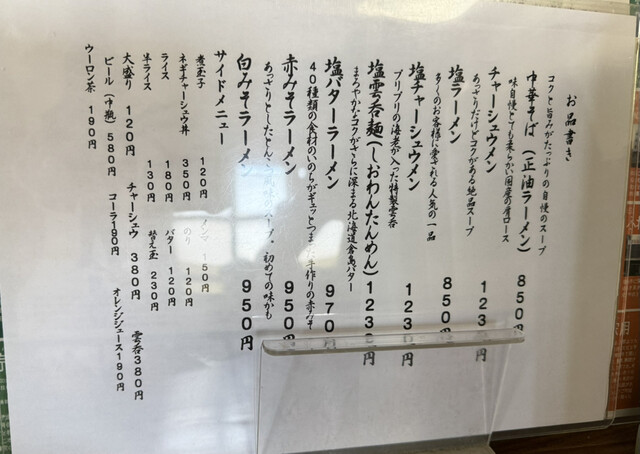 お品書き
コクと旨みがたっぷりの自慢のスープ
中華そば(正油ラーメン) 850円
味自慢とても柔らかい国産の肩ロース
チャーシュウメン 123円
あっさりだけどコクがある絶品スープ
塩ラーメン 850円
多くのお客様に愛される人気の一品
塩チャーシュウメン 123円
プリプリの海老が入った特製雲呑
塩雲呑麺(しおわんたんめん) 123円
まろやかなコクがさらに深まる北海道倉島バター
塩バターラーメン 970円
40種類の食材のいのちがギュッとつまった手作りの赤みそ
赤みそラーメン 950円
あっさりとしたとんこつ風味のスープ・初めての味かも
白みそラーメン 950円
サイドメニュー
煮玉子 120円 メンマ 150円
ネギチャーシュウ丼 350円 のり 120円
ライス 180円 バター 120円
半ライス 130円 替え玉 230円
大盛り 120円 チャーシュウ 380円 雲呑380円
ビール(中瓶) 580円 コーラ190円 オレンジジュース190円
ウーロン茶 190円